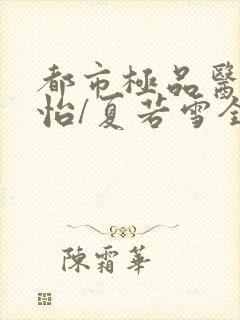 都市極品醫
怡/夏若雪全
陳霜華